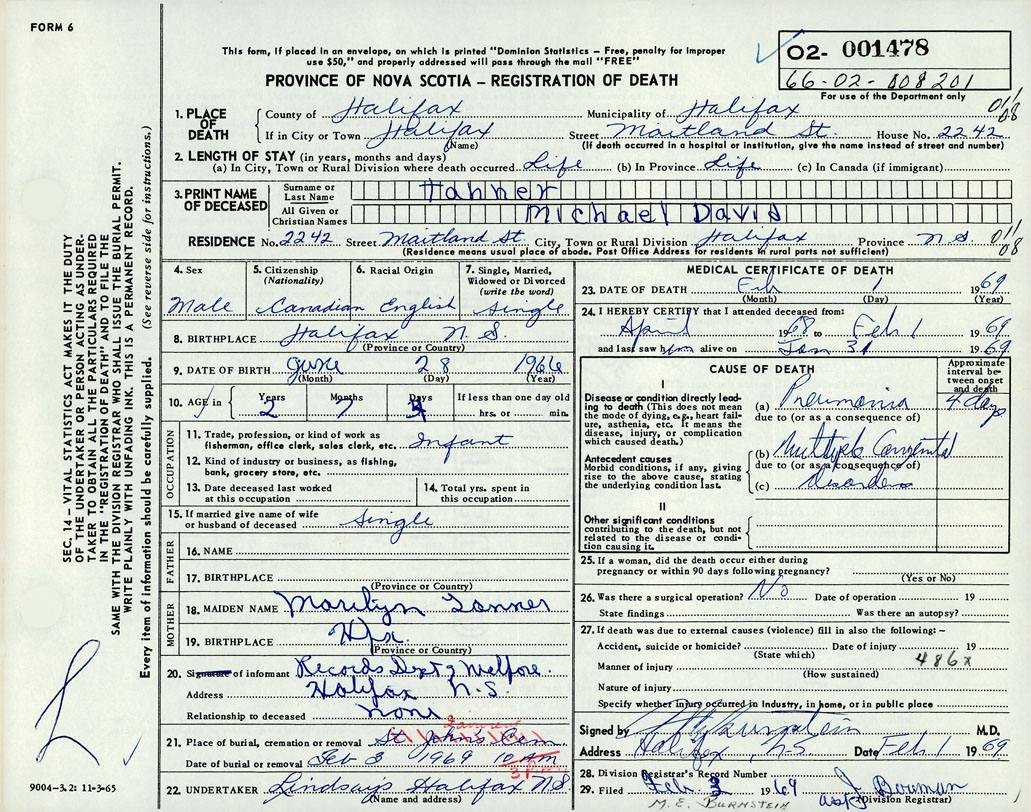 FORM 6
This form, if placed in an envelope, on which is printed "Dominion Statistics – Free, penalty for improper
use $50," and properly addressed will pass through the mail "FREE"
02- 001478
66-02-008201
For use of the Department only
PROVINCE OF NOVA SCOTIA – REGISTRATION OF DEATH
1. PLACE OF DEATH
County of Halifax Municipality of Halifax
If in City or Town Halifax Street Maitland St. House No. 2242
(Name) (If death occurred in a hospital or institution, give the name instead of street and number)
2. LENGTH OF STAY (in years, months and days)
(a) In City, Town or Rural Division where death occurred Life (b) In Province Life (c) In Canada (if immigrant)
3. PRINT NAME OF DECEASED
Surname or Last Name Tanner
All Given or Christian Names Michael David
RESIDENCE No. 2242 Street Maitland St. City, Town or Rural Division Halifax Province N.S.
(Residence means usual place of abode. Post Office Address for residents in rural parts not sufficient)
4. Sex
Male
5. Citizenship
(Nationality)
Canadian
6. Racial Origin
English
7. Single, Married,
Widowed or Divorced
(write the word)
Single
8. BIRTHPLACE Halifax N.S.
(Province or Country)
9. DATE OF BIRTH June 28 1966
(Month) (Day) (Year)
10. AGE in Years Months Days If less than one day old
2 7 hrs. or min.
OCCUPATION
11. Trade, profession, or kind of work as
fisherman, office clerk, sales clerk, etc. Infant
12. Kind of industry or business, as fishing,
bank, grocery store, etc.
13. Date deceased last worked
at this occupation
14. Total yrs. spent in
this occupation
15. If married give name of wife
or husband of deceased Single
FATHER
16. NAME
17. BIRTHPLACE
(Province or Country)
MOTHER
18. MAIDEN NAME Marilyn Tanner
19. BIRTHPLACE Hfx.
(Province or Country)
20. Signature of informant Records Dept of Welfare.
Address Halifax N.S.
Relationship to deceased None
21. Place of burial, cremation or removal St John's Cem
Date of burial or removal Feb 3 1969
22. UNDERTAKER Lindsay's Halifax NS
(Name and address)
MEDICAL CERTIFICATE OF DEATH
23. DATE OF DEATH Feb 1 1969
(Month) (Day) (Year)
24. I HEREBY CERTIFY that I attended deceased from:
April 1968 to Feb 1 1969
and last saw him alive on Jan 31 1969
CAUSE OF DEATH
Approximate
interval be-
tween onset
and death
I
Disease or condition directly lead-
ing to death (This does not
mean the mode of dying, e.g., heart fail-
ure, asthenia, etc. It means the
disease, injury, or complication
which caused death.)
(a) Pneumonia 4 days
due to (or as a consequence of)
Antecedent causes
Morbid conditions, if any, giving
rise to the above cause, stating
the underlying condition last.
(b) Multiple Congenital
due to (or as a consequence of)
(c) disorders
II
Other significant conditions
contributing to the death, but not
related to the disease or condi-
tion causing it.
25. If a woman, did the death occur either during
pregnancy or within 90 days following pregnancy?
(Yes or No)
26. Was there a surgical operation? No Date of operation 19
State findings Was there an autopsy?
27. If death was due to external causes (violence) fill in also the following:–
Accident, suicide or homicide? Date of injury 19
(State which)
486x
Manner of injury
(How sustained)
Nature of injury
Specify whether injury occurred in industry, in home, or in public place
Signed by Burnstein M.D.
Address Halifax, N.S. Date Feb 1 1969
28. Division Registrar's Record Number
29. Filed Feb. 3 1969 J Bowman
M. E. BURNSTEIN (Division Registrar)
SEC. 14 – VITAL STATISTICS ACT MAKES IT THE DUTY
OF THE UNDERTAKER OR PERSON ACTING AS UNDER-
TAKER TO OBTAIN ALL THE PARTICULARS REQUIRED
IN THE "REGISTRATION OF DEATH" AND TO FILE THE
SAME WITH THE DIVISION REGISTRAR WHO SHALL ISSUE THE BURIAL PERMIT.
WRITE PLAINLY WITH UNFADING INK. THIS IS A PERMANENT RECORD.
Every item of information should be carefully supplied. (See reverse side for instructions.)
9004-3.2: 11-3-65